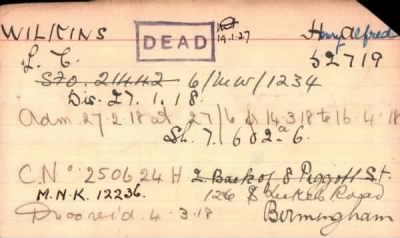 WILKINS DEAD 19.1.27 Henry Alfred
L. C. 52719
S70. 21442 6/MW/1234
Dis. 27. 1. 18.
Adm 27. 2. 18 at 27/6 fr 14. 3. 18 to 16 4. 18
7. 602 6
C.Nº 250624 H 2 Back of 8 Piggott St.
M.N.K. 12236. 126 Road
4. 3. 18 Birmingham